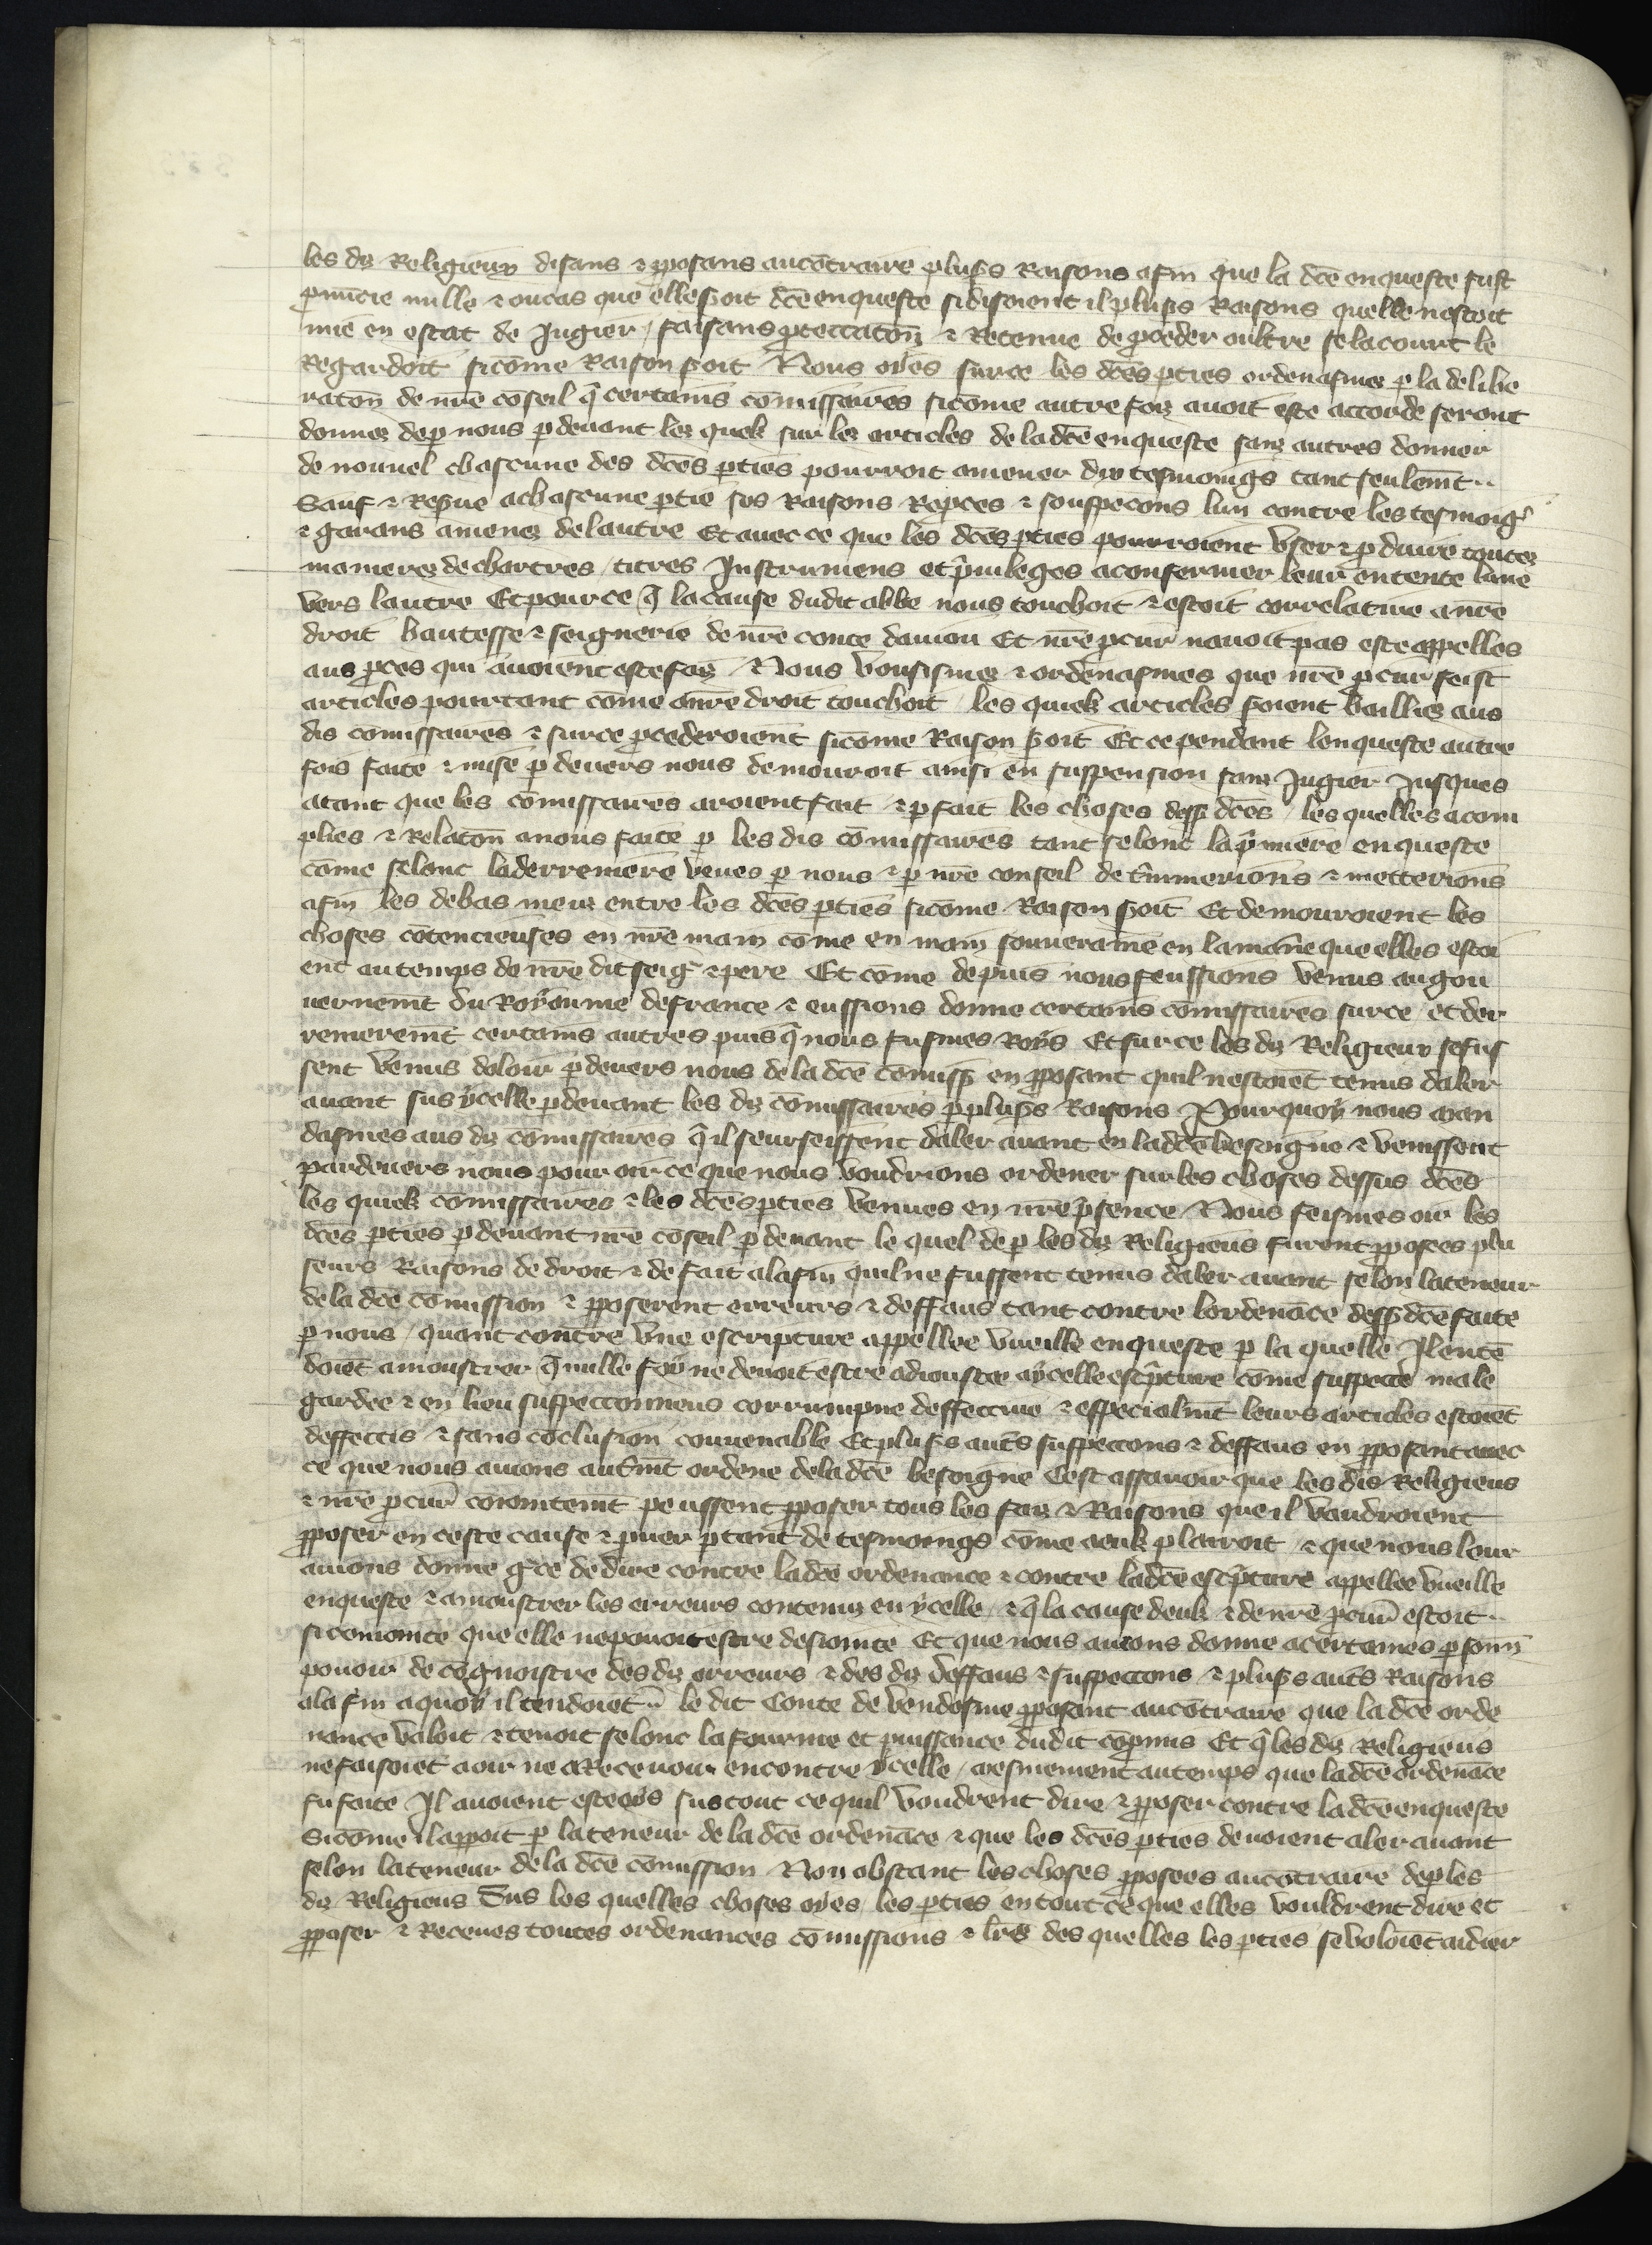 les diz Religieux disans ⁊ pposans aucōtraire plus̄s Raisons afin que la dc̄e enqueste fust
pnūcie nulle ⁊ oucas que elle s̄oit dc̄e enqueste si disoient il plus̄s Raisons quelle nestoit
mie en estat de Jugier / faisans ptectatoñ ⁊ Retenue de pceder oultre se la court le
Regardoit sicōme Raison s̄oit Nous oyes surce les dc̄es pties ordenasmes p la delibe
ratoñ de nr̄e cōseil q̄ certains cōmissaires sicōme autre foiz auoit este accorde seront
donnez dep nous pdeuant lez quelx sur lez articles de la dc̄e enqueste sanz autres donner
de nouuel chascune des dc̄es pties pourroit amener dix tesmoings tant seulemt̄ ..
Sauf ⁊ Res̄ue achascune ptie ses Raisons Repces ⁊ souspecons lun contre les tesmoigs
⁊ garans amenez de lautre Et auec ce que les dc̄es pties pourroient vser ⁊ pduire toutez
manierez de chartres / titres Instrumens et p̄uileges aconfermer leur entente lune
vers lautre Et pource q̄ la cause dudit abbe nous touchoit ⁊ estoit correlatiue a nr̄e
droit hautesse ⁊ seignerie de nr̄e conte daniou Et nr̄e pcur̄ nauoit pas este appelles
aus pces qui auoient este faiz / Nous vousismez ⁊ ordenasmes que nr̄e pcur̄ feist
articles pourtant cōme a nr̄e droit touchoit / les quielx articles s̄oient bailliez aus
dis cōmissaires ⁊ surce pcederoient sicōme Raison s̄oit Et ce pendant lenqueste autre
fois faite ⁊ mise pdeuers nous demouroit ainsi en suspension sanz Jugier Jusques
atant que les cōmissaires aroient fait ⁊ pfait les choses dess̄ dc̄es / les quelles acom
plies ⁊ Relatoñ a nous faite p les dis cōmissaires tant selonc la p̄miere enqueste
cōme selonc laderreniere veues p nous ⁊ p nr̄e conseil det̄minerions ⁊ metterions
afin les debas meuz entre les dc̄es pties sicōme Raison s̄oit Et demouroient les
choses cōtencieuses en nr̄e main cōme en main souueraine en la mani̅e que elles estoi
ent au temps de nr̄e dit seig̅ ⁊ pere Et cōme depuis nous feussions venus augou
uernemt̄ du Royaume defrance ⁊ eussions donne certains cōmissaires surce / et der
renieremt̄ certains autres puis q̄ nous fusmes Roys Et sur ce les diz Religieux sefus
sent venus doloir pdeuers nous de la dc̄e cōmiss̄ en pposant quil nestoiēt tenus daler
auant sus ycelle pdeuant les diz cōmissaires p plus̄s Raisons Pourquoy nous man
dasmes aus diz cōmissaires q̄ il seurseissent daler auant en ladc̄e besoigne ⁊ venissent
pardeuers nous pour oir ce que nous voudrions ordener sur les choses dessus dc̄es
les quielx cōmissaires ⁊ les dc̄es pties venues en nr̄e p̄sence / Nous feismes oir les
dc̄es pties pdeuant nr̄e cōseil pdeuant le quel dep les diz Religieus furent pposees plu
seurs Raisons de droit ⁊ de fait alafin quil ne fussent tenus daler auant selon lateneur
de la dc̄e cōmission ⁊ pposerent erreurs ⁊ deffaus tant contre lordenāce dess̄ dc̄e faite
p nous / quant contre vne escripture appellee vueille enqueste p la quelle Il entē
doiēt amoustrer q̄ nulle foy ne deuoit estre adioustee aycelle esc̄pture cōme suspecte male
gardee ⁊ en lieu suspeccionneus corrumpue deffectiue ⁊ especialmt̄ leurs articles estoiēt
deffectis ⁊ sans cōclusion conuenable Et plus̄s aut̄s suspecons ⁊ deffaus en pposant auec
ce que nous auions aut̄mt̄ ordene dela dc̄e besoigne Cest assauoir que les dis Religieus
⁊ nr̄e pcur̄ cōiointemt̄ peussent pposer tous les faiz ⁊ Raisons que il vaudroient
pposer en ceste cause ⁊ puer p tant de tesmoings cōme aeulx plairoit / ⁊ que nous leur
auions donne gr̄ce de dire contre ladc̄e ordenance ⁊ contre ladc̄e esc̄pture appellee vueille
enqueste ⁊ amoustrer les erreurs contenuz en ycelle / ⁊ q̄ la cause deulx ⁊ de nr̄e pcur̄ estoit ..
si cōiointe que elle nepouoit estre desiointe Et que nous auions donne acertaines psonn̄
pouoir de cognoistre des diz erreurs ⁊ des diz deffaus ⁊ suspectons ⁊ plus̄s aut̄s Raisons
ala fin aquoy il tendoiēt .. le dit Conte de vendosme pposant aucōtraire que la dc̄e orde
nance valoit ⁊ tenoit selonc la fourme et puissance dudit cōpmis Et q̄ les diz Religieus
nefaisoiēt aoir ne aReceuoir encontre ycelle / mesmement autemps que ladc̄e ordenāce
fu faite Il auoient este oys sus tout ce quil voudrent dire ⁊ pposer contre ladc̄e enqueste
Sicōme il apparoit p la teneur de la dc̄e ordenāce ⁊ que les dc̄es pties deuoient aler auant
selon lateneur dela dc̄e cōmission Non obstant les choses pposees aucōtraire dep les
diz Religieus Sus les quelles choses oyes les pties en tout ce que elles vouldrent dire et
pposer ⁊ Receues toutes ordenances cōmissions ⁊ lr̄es des quelles les pties se voloiēt aidier